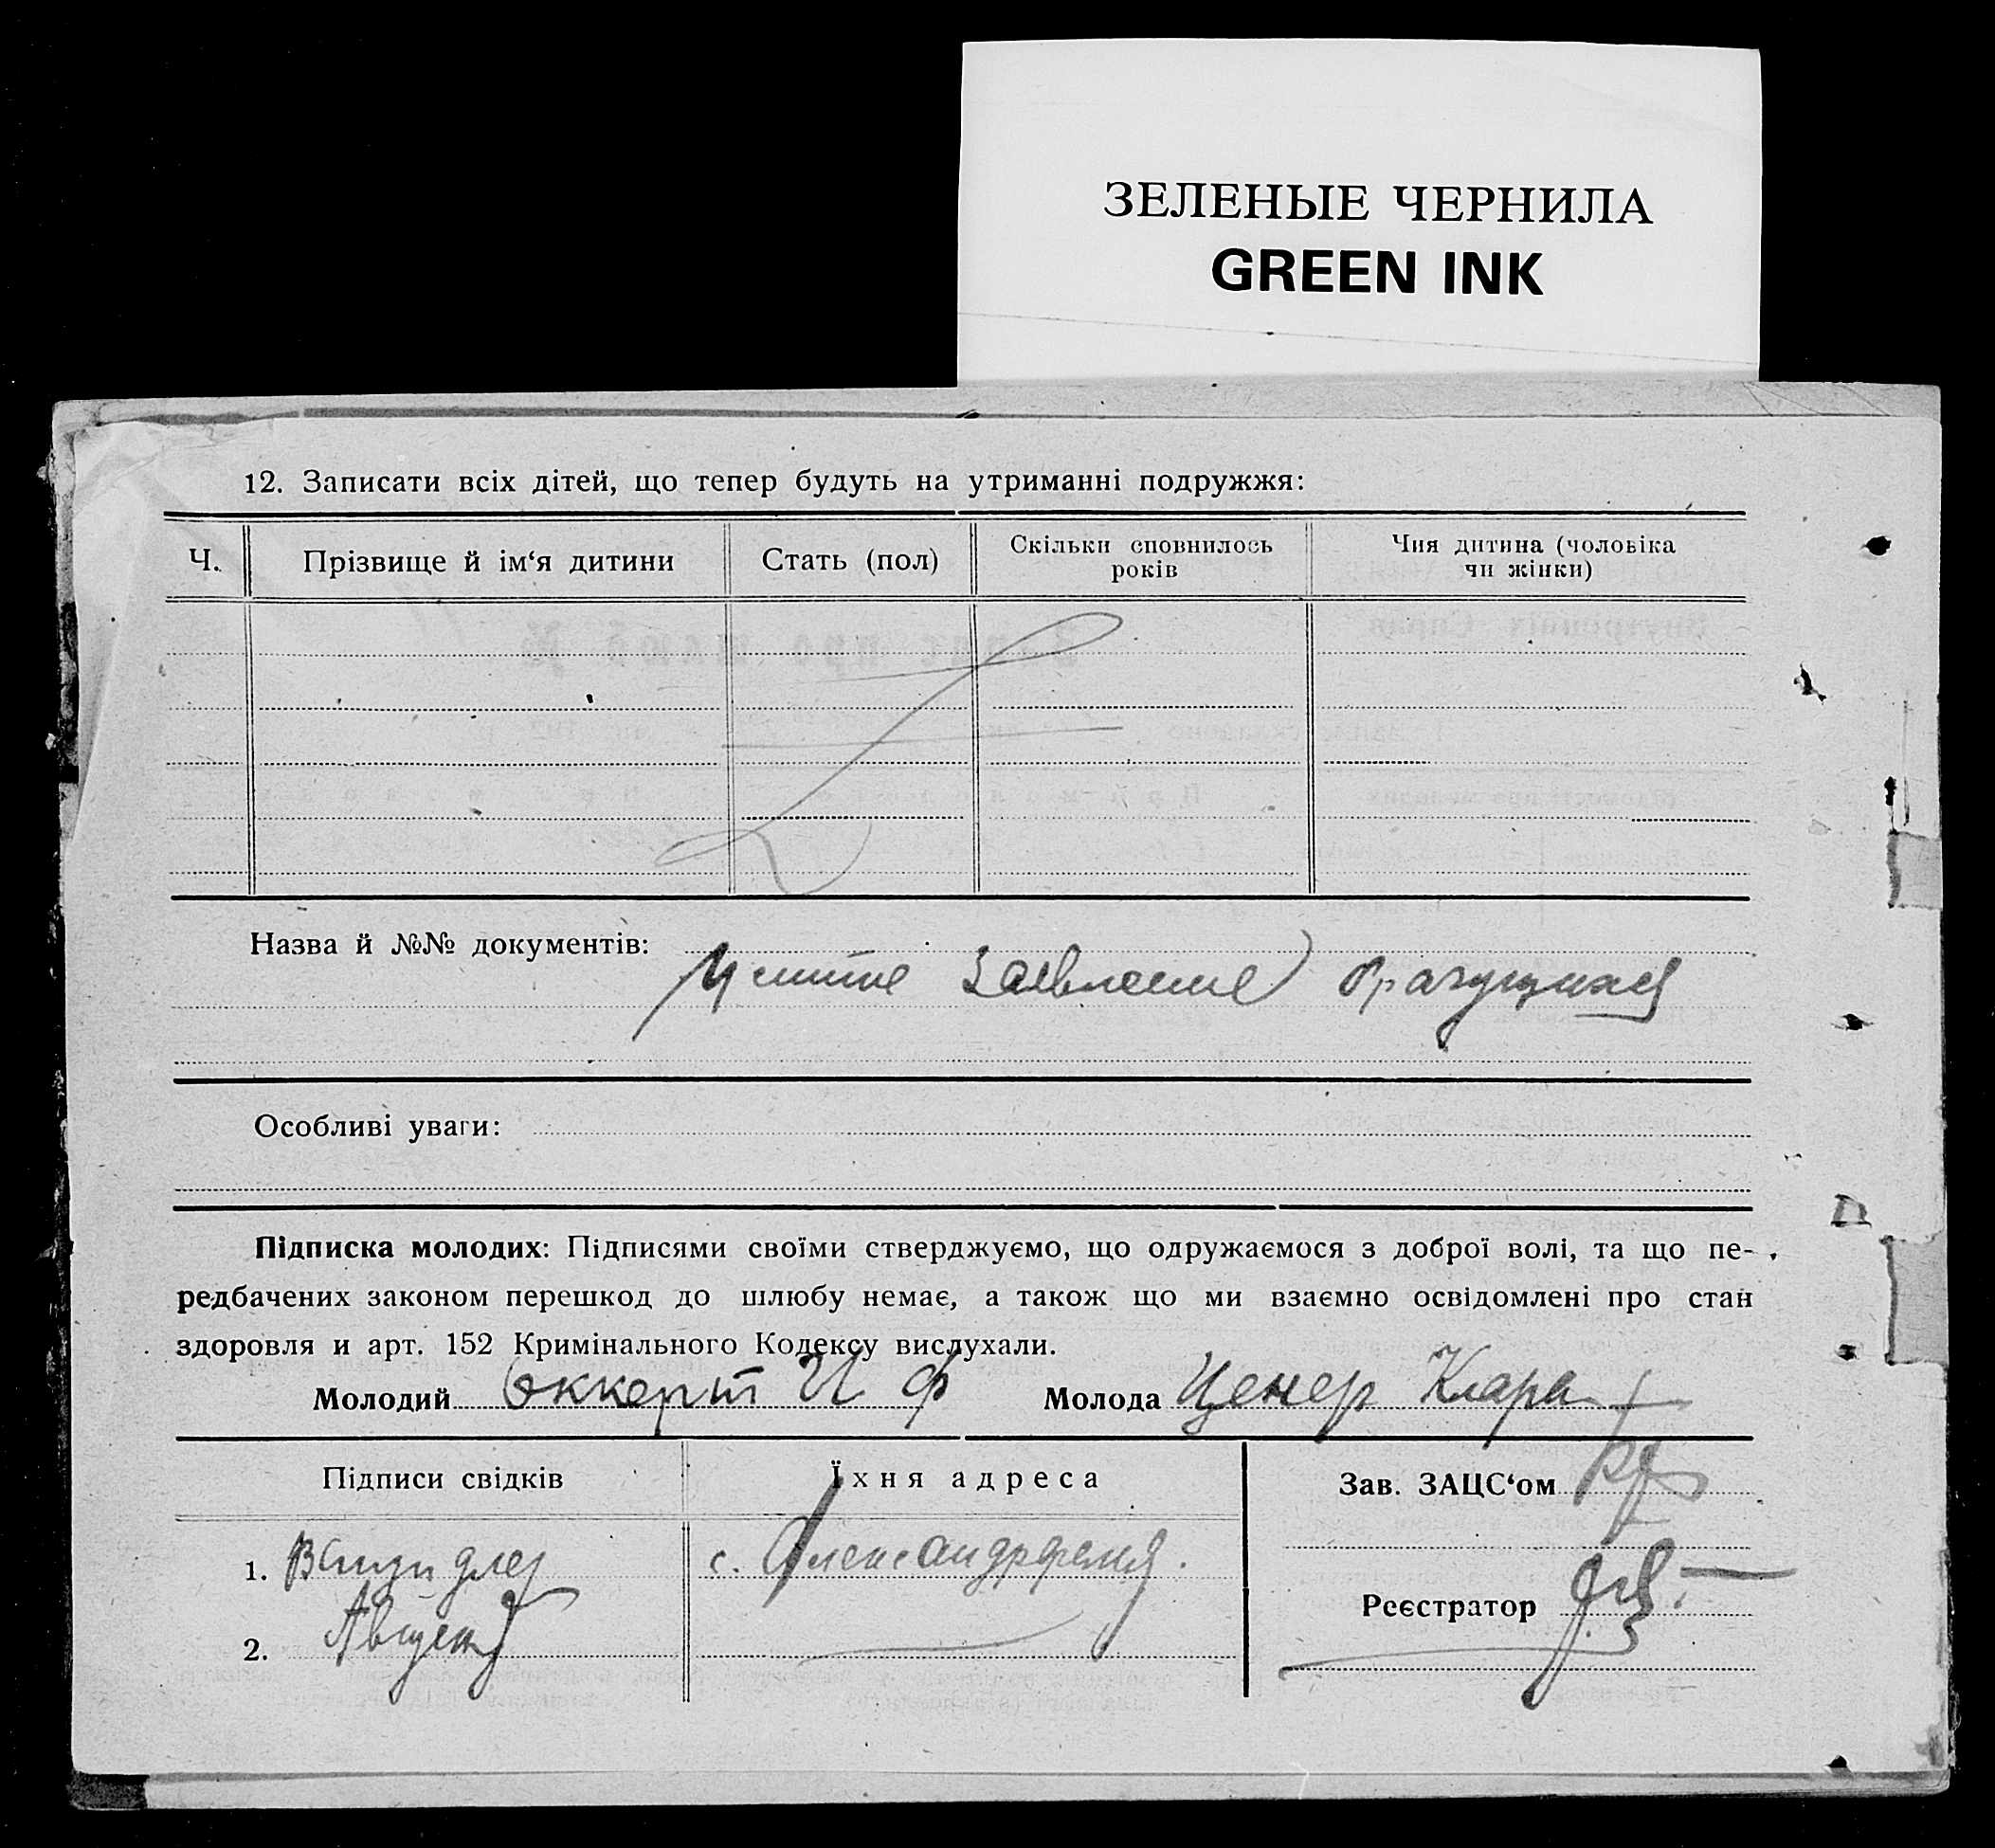 ЗЕЛЕНЫЕ ЧЕРНИЛА
GREEN INK
12. Записати всіх дітей, що тепер будуть на утриманні подружжя:
Ч. Прізвище й ім‘я дитини Стать (пол) Скільки сповнилось років Чия дитина (чоловіка чи жінки)
Назва й №№ документів: заявление брачущихся
Особливі уваги:
Підписка молодих: Підписями своїми стверджуємо, що одружаємося з доброї волі, та що пе-
редбачених законом перешкод до шлюбу немає, а також що ми взаємно освідомлені про стан
здоровля и арт. 152 Кримінального Кодексу вислухали.
Молодий Эккерт И Ф Молода Ценер Клара
Підписи свідків Їхня адреса Зав. ЗАЦС‘ом
1. с. Александрфельд.
Реєстратор
2. Август